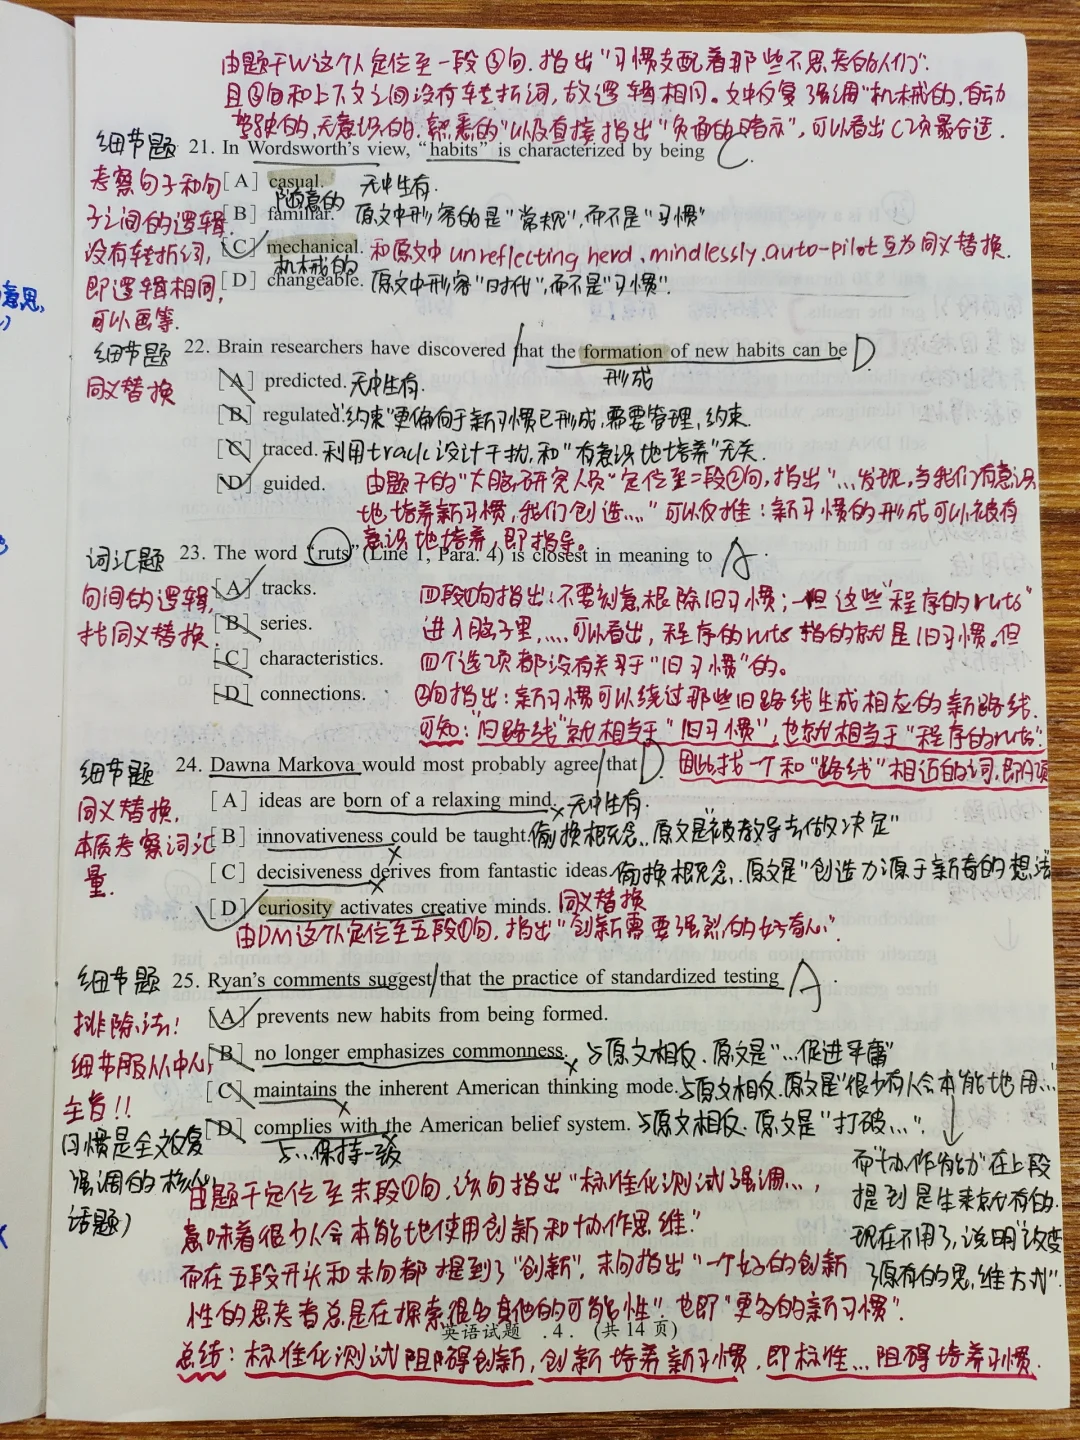 由题干W这个人定位至一段③句.指出"习惯支配着那些不思考的人们".
且③句和上下文之间没有转折词,故逻辑相同。文中反复强调"机械的.自动
驾驶的.无意识的.熟悉的"以及直接指出"负面的暗示",可以看出C项最合适.
细节题 21. In Wordsworth's view, "habits" is characterized by being C.
考察句子和句
子之间的逻辑.
没有转折词,
即逻辑相同,
可以画等.
[A] casual. 无中生有.
随意的
[B] familiar. 原文中形容的是"常规",而不是"习惯"
[C] mechanical. 和原文中unreflecting herd、mindlessly.auto-pilot互为同义替换.
机械的
[D] changeable. 原文中形容"时代",而不是"习惯".
细节题 22. Brain researchers have discovered that the formation of new habits can be D.
形成
同义替换
[A] predicted. 无中生有.
[B] regulated."约束"更偏向于新习惯已形成,需要管理,约束.
[C] traced. 利用track设计干扰,和"有意识地培养"无关.
[D] guided. 由题干的"大脑研究人员"定位至二段②句,指出"...发现,当我们有意识
地培养新习惯,我们创造...."可以反推:新习惯的形成可以被有
意识地培养,即指导。
词汇题 23. The word "ruts" (Line 1, Para. 4) is closest in meaning to A.
句间的逻辑,
找同义替换.
[A] tracks.
[B] series.
[C] characteristics.
[D] connections.
四段①句指出:不要刻意根除旧习惯;一旦这些"程序的ruts"
进入脑子里,....可以看出,程序的ruts指的就是旧习惯。但
四个选项都没有关于"旧习惯"的。
②句指出:新习惯可以绕过那些旧路线生成相应的新路线.
可知:"旧路线"就相当于"旧习惯",也就相当于"程序的ruts".
因此找一个和"路线"相近的词,即A项
细节题 24. Dawna Markova would most probably agree that D.
同义替换,
本质考察词汇
量.
[A] ideas are born of a relaxing mind. 无中生有.
[B] innovativeness could be taught. 偷换概念.原文是"被教导去做决定"
[C] decisiveness derives from fantastic ideas. 偷换概念.原文是"创造力源于新奇的想法"
[D] curiosity activates creative minds. 同义替换
由DM这个人定位至五段①句,指出"创新需要强烈的好奇心".
细节题 25. Ryan's comments suggest that the practice of standardized testing A.
排除法!
细节服从中心,
主旨!!
习惯是全文反复
强调的核心
话题)
[A] prevents new habits from being formed.
[B] no longer emphasizes commonness. 与原文相反.原文是"...促进平庸"
[C] maintains the inherent American thinking mode. 与原文相反.原文是"很少有人会本能地用...."
[D] complies with the American belief system. 与原文相反.原文是"打破....".
与...保持一致
而"协作能力"在上段
提到是生来就有的.
现在不用了,说明"改变
了原有的思维方式".
由题干定位至末段①句,该句指出"标准化测试强调...,
意味着很少人会本能地使用创新和协作思维."
而在五段开头和末句都提到了"创新".末句指出"一个好的创新
性的思考者总是在探索很多其他的可能性".也即"更多的新习惯".
英语试题 .4. (共14页)
总结:标准化测试阻碍创新,创新培养新习惯,即标准...阻碍培养习惯.